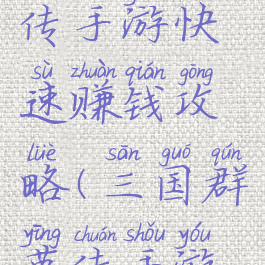 传手游快
sù zhuàn qián gōng
速赚钱攻
lüè sān guó qún
略(三国群
yīng chuán shǒu yóu
英传手游